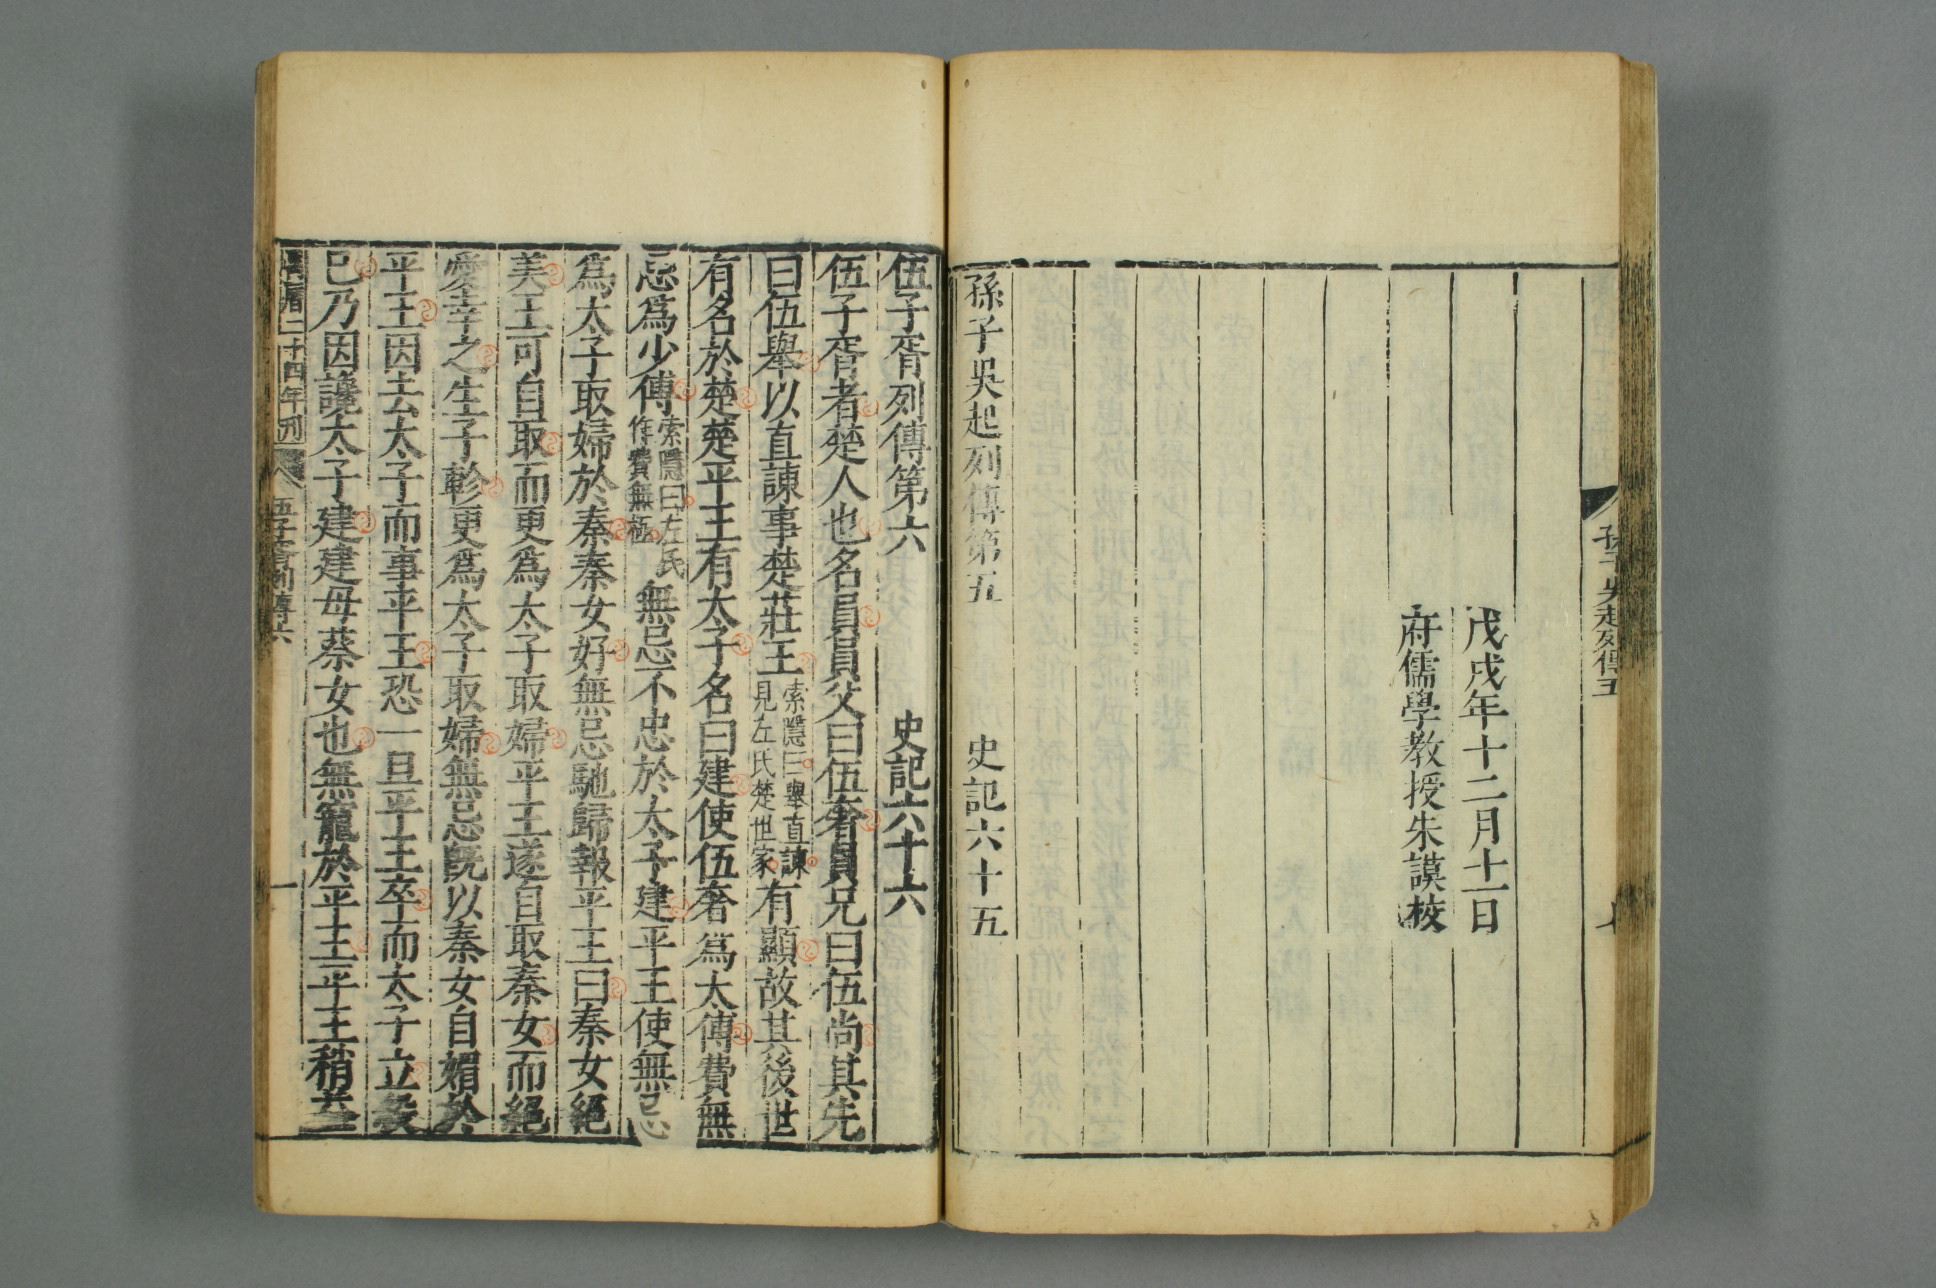 孫子吳起列傳五
七
戊戌年十二月十一日
府儒學教授朱謨校
孫子吳起列傳第五 史記六十五
伍子胥列傳第六 史記六十六
伍子胥者楚人也名員員父曰伍奢員兄曰伍尚其先
曰伍舉以直諫事楚莊王索隱曰舉直諫見左氏楚世家有顯故其後世
有名於楚楚平王有太子名曰建使伍奢爲太傅費無
忌爲少傅索隱曰左氏作費無極無忌不忠於太子建平王使無忌
爲太子取婦於秦秦女好無忌馳歸報平王曰秦女絕
美王可自取而更爲太子取婦平王遂自取秦女而絕
愛幸之生子軫更爲太子取婦無忌旣以秦女自媚於
平王因去太子而事平王恐一旦平王卒而太子立殺
已乃因讒太子建建母蔡女也無寵於平王平王稍益
二十四年刊 伍子胥列傳六 一